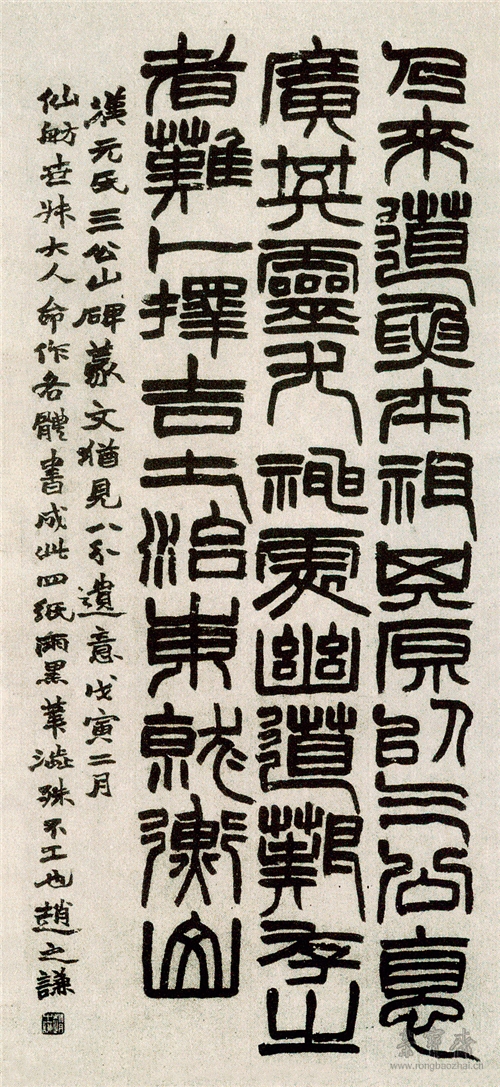 乃來道要本祖其原以三公惪
廣其靈尤神處幽道艱存之
者難卜擇吉土治東就衡山
漢元氏三公山碑篆文猶見八分遺意戊寅二月
仙舫世叔大人命作各體書成此四紙雨黑筆澁殊不工也趙之謙
榮寶齋
www.rongbaozhai.cn